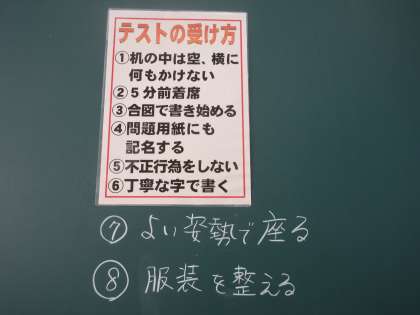 テストの受け方
①机の中は空、横に
何もかけない
②5分前着席
③合図で書き始める
④問題用紙にも
記名する
⑤不正行為をしない
⑥丁寧な字で書く
⑦よい姿勢で座る
⑧服装を整える